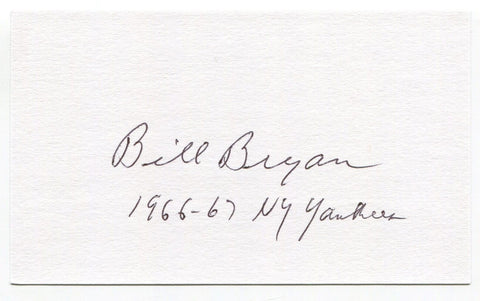 Bill Bryan
1966-67 NY Yankees